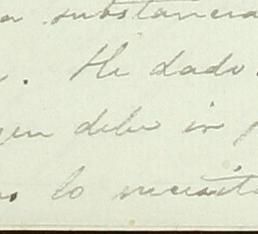 a substancia
. He dado
gen debe ir
lo necesita